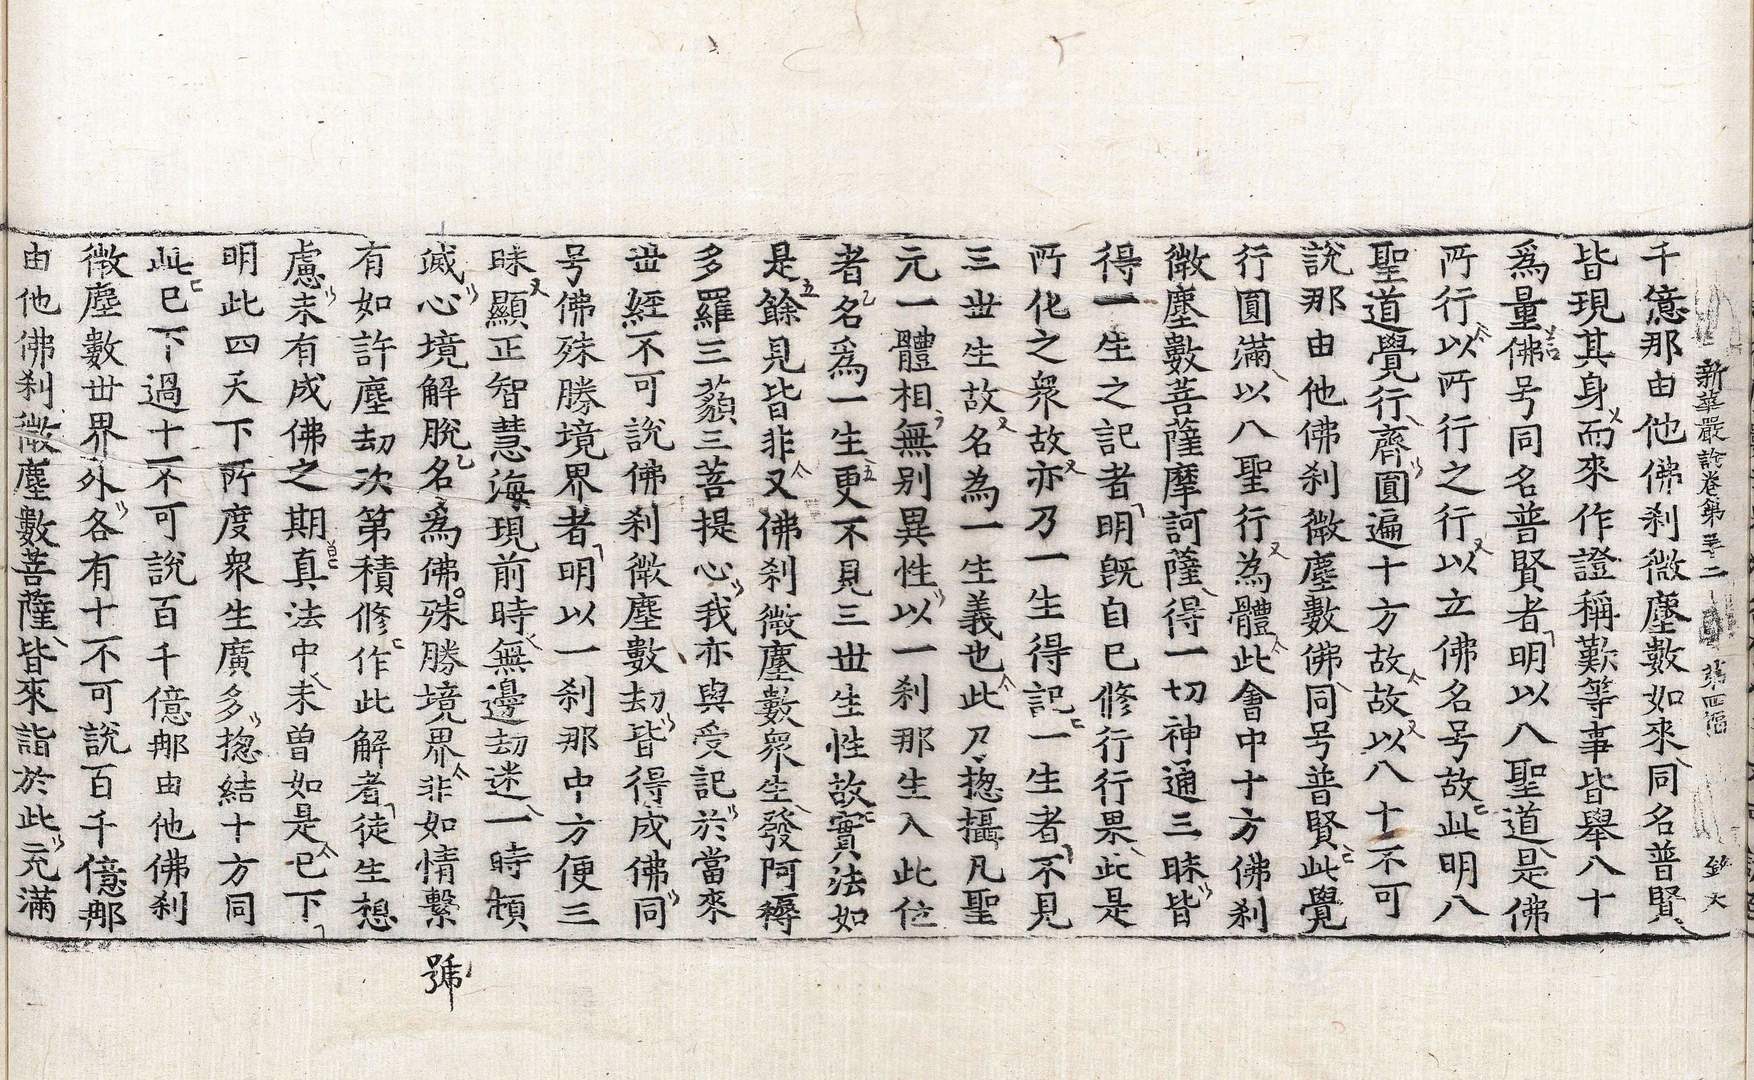 千億那由他佛刹微塵數如來同名普賢
新華嚴論卷第三十二 第四幅
皆現其身而來作證稱歎等事皆舉八十
爲量佛号同名普賢者明以八聖道是佛
所行以所行之行以立佛名号故此明八
聖道覺行齊圓遍十方故故以八十不可
說那由他佛刹微塵數佛同号普賢此覺
行圓滿以八聖行為體此會中十方佛刹
微塵數菩薩摩訶薩得一切神通三昧皆
得一生之記者明旣自已修行行果此是
所化之衆故亦乃一生得記一生者不見
三世生故名為一生義也此乃揔攝凡聖
元一體相無別異性以一刹那生入此位
者名爲一生更不見三世生性故實法如
是餘見皆非又佛刹微塵數衆生發阿耨
多羅三藐三菩提心我亦與受記於當來
世經不可說佛刹微塵數劫皆得成佛同
号佛殊勝境界者明以一刹那中方便三
昧顯正智慧海現前時無邊劫迷一時頓
滅心境解脫名為佛殊勝境界非如情繫
號
有如許塵劫次第積修作此解者徒生想
慮未有成佛之期真法中未曾如是已下
明此四天下所度衆生廣多揔結十方同
此已下過十不可說百千億那由他佛刹
微塵數世界外各有十不可說百千億那
由他佛刹微塵數菩薩皆來詣於此充滿